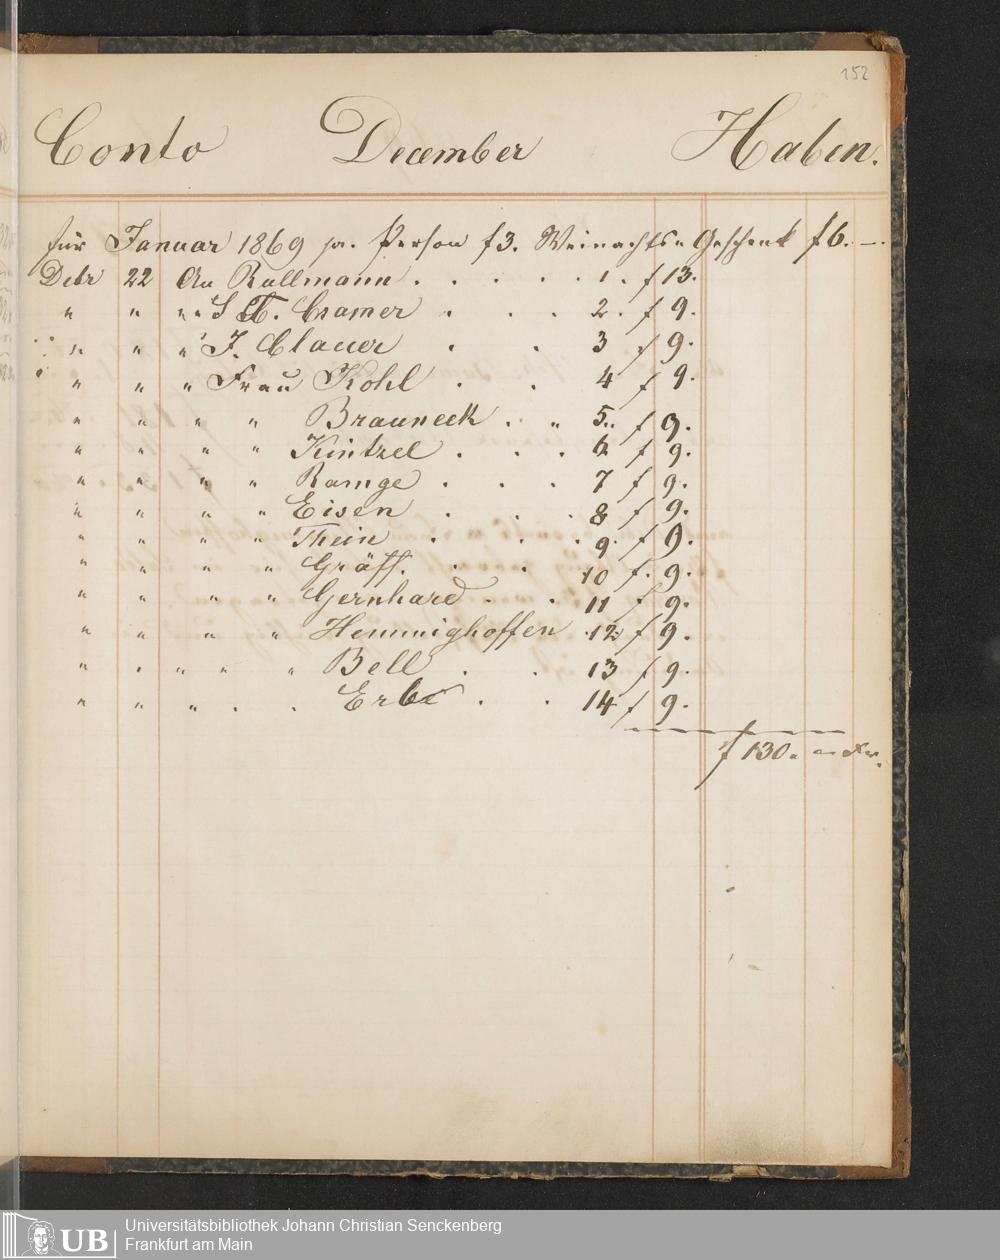 152
Conto December Haben.
für Januar 1869 pr. Person f 3. Weinachts„ Geschenk f 6. —.
Debr 22 An Rallmann . . . . . 1. f 13.
„ „ „ Cramer . . . 2. f 9.
„ „ „ J. Clauer . . 3 f 9.
„ „ „ Frau Kohl . . 4 f 9.
„ „ „ „ Brauneck . „ 5.. f 9.
„ „ „ „ Kintzel . . . 6 f 9.
„ „ „ „ Ramge . . . 7 f 9.
„ „ „ „ Eisen . . . 8 f 9.
„ „ „ „ Thein . . . 9. f 9.
„ „ „ „ Gräff. . . 10 f. 9.
„ „ „ „ Gernhard . . 11 f 9.
„ „ „ „ Hemmighoffen . 12 f 9.
„ . „ „ „ Bell . . 13 f 9.
„ „ „ . . Erbe . . 14 f 9.
f 130. — Kr.
UB Universitätsbibliothek Johann Christian Senckenberg
Frankfurt am Main